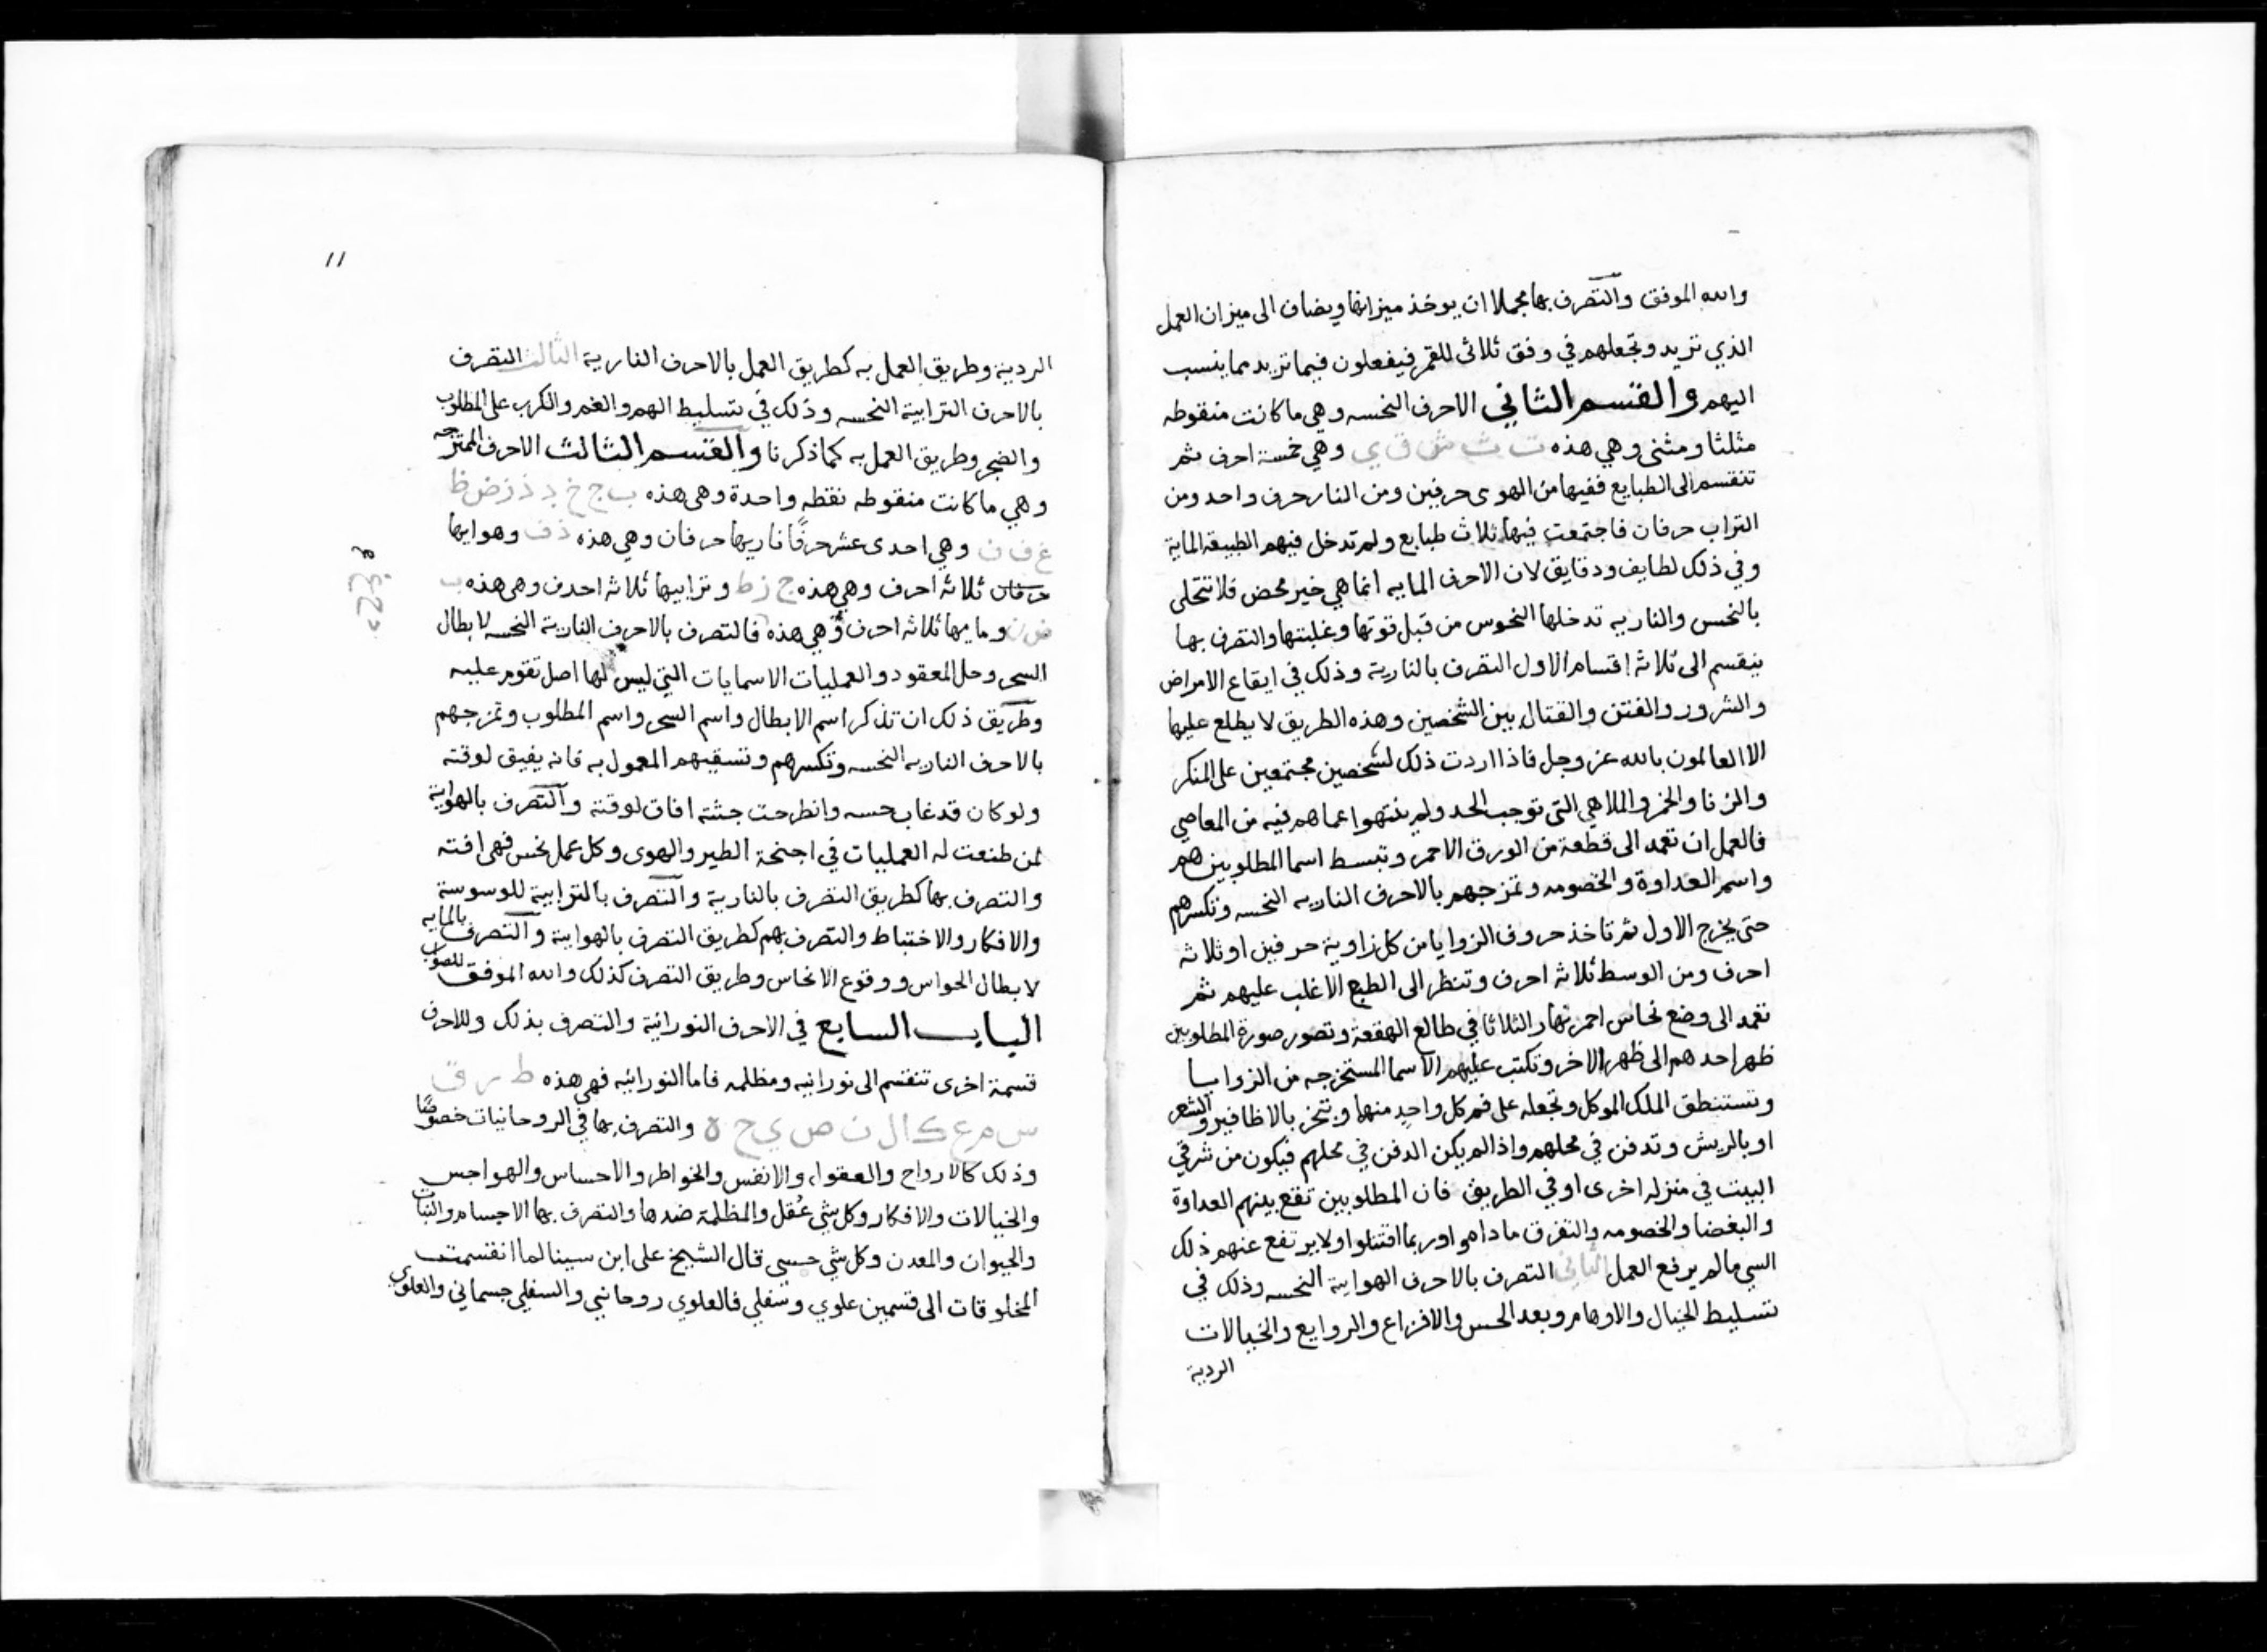 والله الموفق والتصرف بها مجملا ان يوخذ ميزانها ويضاف الى ميزان العمل
الذي تريد وتجعلهم في وفق ثلاثى للقمر فيفعلون فيما تريد مما ينسب
اليهم والقسم الثاني الاحرف النحسه وهي ما كانت منقوطه
مثلثا ومثنى وهي هذه ت ث ش ق ي وهي خمسة احرف ثم
تنقسم الى الطبايع ففيها من الهوى حرفين ومن النار حرف واحد ومن
التراب حرفان فاجتمعت فيها ثلاث طبايع ولم تدخل فيهم الطبيعة الماية
وفي ذلك لطايف ودقايق لان الاحرف المايه انما هي خير محض فلا تتحلى
بالنحس والناريه تدخلها النحوس من قبل قوتها وغلبتها والتصرف بها
ينقسم الى ثلاثه اقسام الاول التصرف بالنارية وذلك في ايقاع الامراض
والشرور والفتن والقتال بين الشخصين وهذه الطريق لا يطلع عليها
الا العالمون بالله عز وجل فاذا اردت ذلك لشخصين مجتمعين على المنكر
والزنا والخمر والملاهي التى توجب الحد ولم ينتهوا عما هم فيه من المعاصي
فالعمل ان تعمد الى قطعة من الورق الاحمر وتبسط اسما المطلوبين هم
واسم العداوة والخصومه وتمزجهم بالاحرف الناريه النحسه وتكسرهم
حتى يخرج الاول ثم تاخذ حروف الزوايا من كل زاوية حرفين او ثلاثه
احرف ومن الوسط ثلاثه احرف وتنظر الى الطبع الاغلب عليهم ثم
تعمد الى وضع نحاس احمر نهار الثلاثا في طالع الهقعة وتصور صورة المطلوبين
ظهر احدهم الى ظهر الاخر وتكتب عليهم الاسما المستخرجه من الزوايا
وتستنطق الملك الموكل وتجعله على فم كل واحد منها وتبخر بالاظافير والشعر
او بالريش وتدفن في محلهم واذا لم يكن الدفن في محلهم فيكون من شرقي
البيت في منزله اخرى او في الطريق فان المطلوبين تقع بينهم العداوة
والبغضا والخصومه والتفرق ما داموا وربما اقتتلوا ولا يرتفع عنهم ذلك
السي ما لم يرفع العمل الثاني التصرف بالاحرف الهوايه النحسه وذلك في
تسليط الخيال والاوهام وبعد الحس والافزاع والروايع والخيالات
الردية
١١
الردية وطريق العمل به كطريق العمل بالاحرف النارية الثالث التصرف
بالاحرف الترابية النحسه وذلك في تسليط الهم والغم والكرب على المطلوب
والضجر وطريق العمل به كما ذكرنا والقسم الثالث الاحرف الممتزجه
وهي ما كانت منقوطه نقطه واحدة وهي هذه ب ج خ د ذ ز ض ظ
غ ف ن وهي احدى عشر حرفًا ناريها حرفان وهي هذه ذ ف وهوايها
حرفان ثلاثه احرف وهي هذه ج ز ظ وترابيها ثلاثه احرف وهي هذه ب
ض ن ومايها ثلاثه احرف وهي هذه فالتصرف بالاحرف النارية النحسه لابطال
السحر وحل المعقود والعمليات الاسمايات التي ليس لها اصل تقوم عليه
وطريق ذلك ان تذكر اسم الابطال واسم السحر واسم المطلوب وتمزجهم
بالاحرف الناريه النحسه وتكسرهم وتسقيهم المعمول به فانه يفيق لوقته
ولو كان قد غاب حسه وانطرحت جثته افاق لوقته والتصرف بالهواية
لمن طنعت له العمليات في اجنحة الطير والهوى وكل عمل نحس فهي افته
والتصرف بها كطريق التصرف بالنارية والتصرف بالترابية للوسوسة
والافكار والاختباط والتصرف بهم كطريق التصرف بالهواية والتصرف بالمايه
لابطال الحواس ووقوع الانحاس وطريق التصرف كذلك والله الموفق للصواب
الباب السابع في الاحرف النورانية والتصرف بذلك وللاحرف
قسمة اخرى تنقسم الى نورانيه ومظلمه فاما النورانيه فهي هذه ط ر ق
س م ع ك ا ل ن ص ي ح ه والتصرف بها في الروحانيات خصوصًا
وذلك كالارواح والعقول والانفس والخواطر والاحساس والهواجس
والخيالات والافكار وكل شي عقل والمظلمة ضدها والتصرف بها الاجسام والنبات
والحيوان والمعدن وكل شي حسي قال الشيخ على ابن سينا لما انقسمت
المخلوقات الى قسمين علوي وسفلي فالعلوي روحاني والسفلي جسماني والعلوي